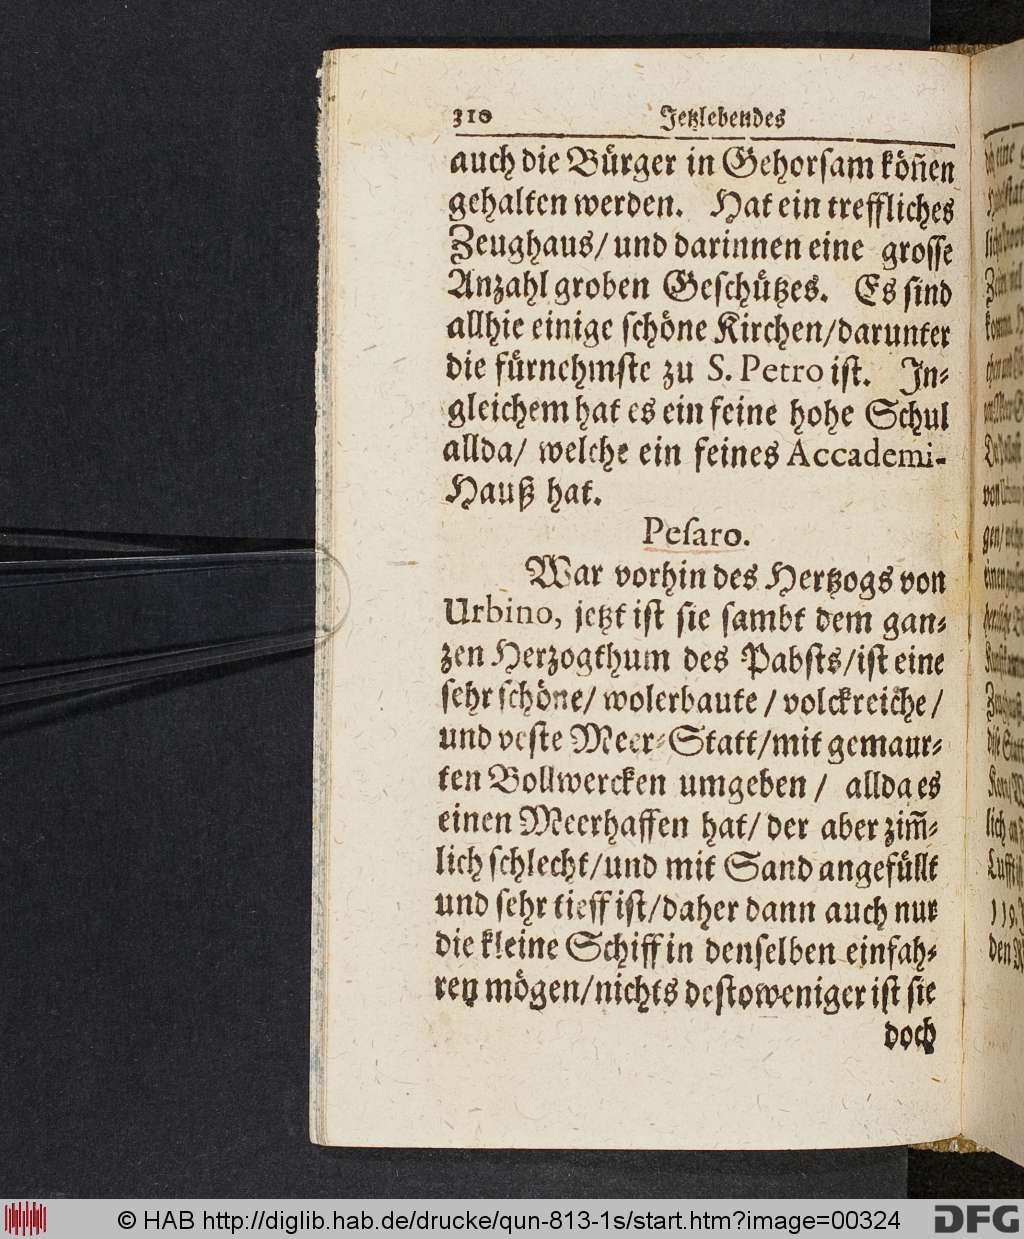 310 Jetzlebendes
auch die Bürger in Gehorsam köñen
gehalten werden. Hat ein treffliches
Zeughaus/ und darinnen eine grosse
Anzahl groben Geschützes. Es sind
allhie einige schöne Kirchen/darunter
die fürnehmste zu S. Petro ist. In-
gleichem hat es ein feine hohe Schul
allda/ welche ein feines Accademi-
Hauß hat.
Pesaro.
War vorhin des Hertzogs von
Urbino, jetzt ist sie sambt dem gan-
zen Herzogthum des Pabsts/ist eine
sehr schöne/ wolerbaute / volckreiche /
und veste Meer-Statt/mit gemaur-
ten Bollwercken umgeben / allda es
einen Meerhaffen hat/ der aber zim̃-
lich schlecht/und mit Sand angefüllt
und sehr tieff ist/daher dann auch nur
die kleine Schiff in denselben einfah-
ren mögen/nichts destoweniger ist sie
doch
© HAB http://diglib.hab.de/drucke/qun-813-1s/start.htm?image=00324
DFG